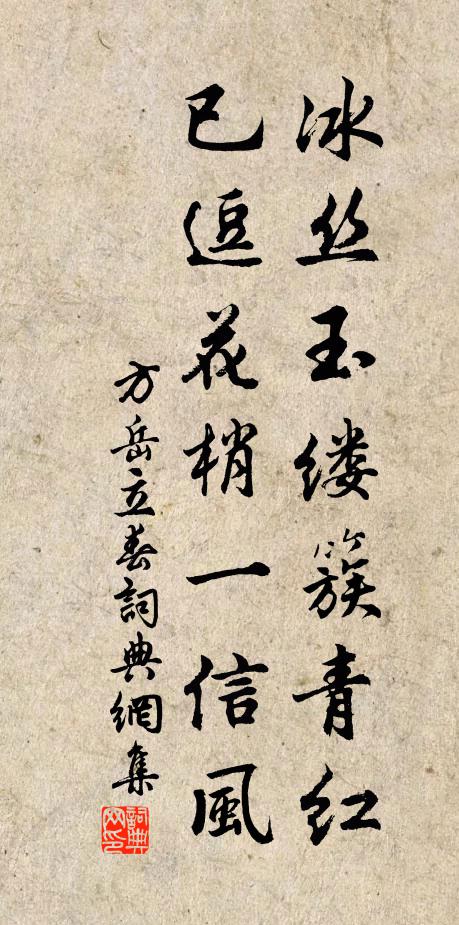 冰丝玉缕簇青红
已逗花梢一信風
方岳立春詞典網集
詞典网印